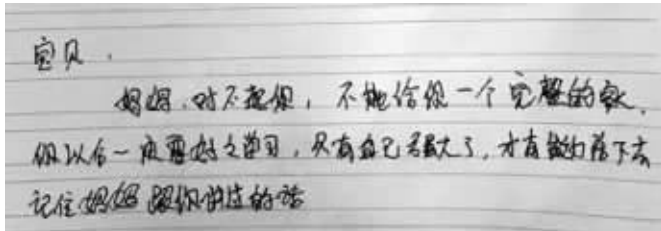 宝贝，
妈妈，对不起你，不能给你一个完整的家，
你以后一定要好好学习，只有自己强大了，才有能力活下去
记住妈妈跟你讲过的话